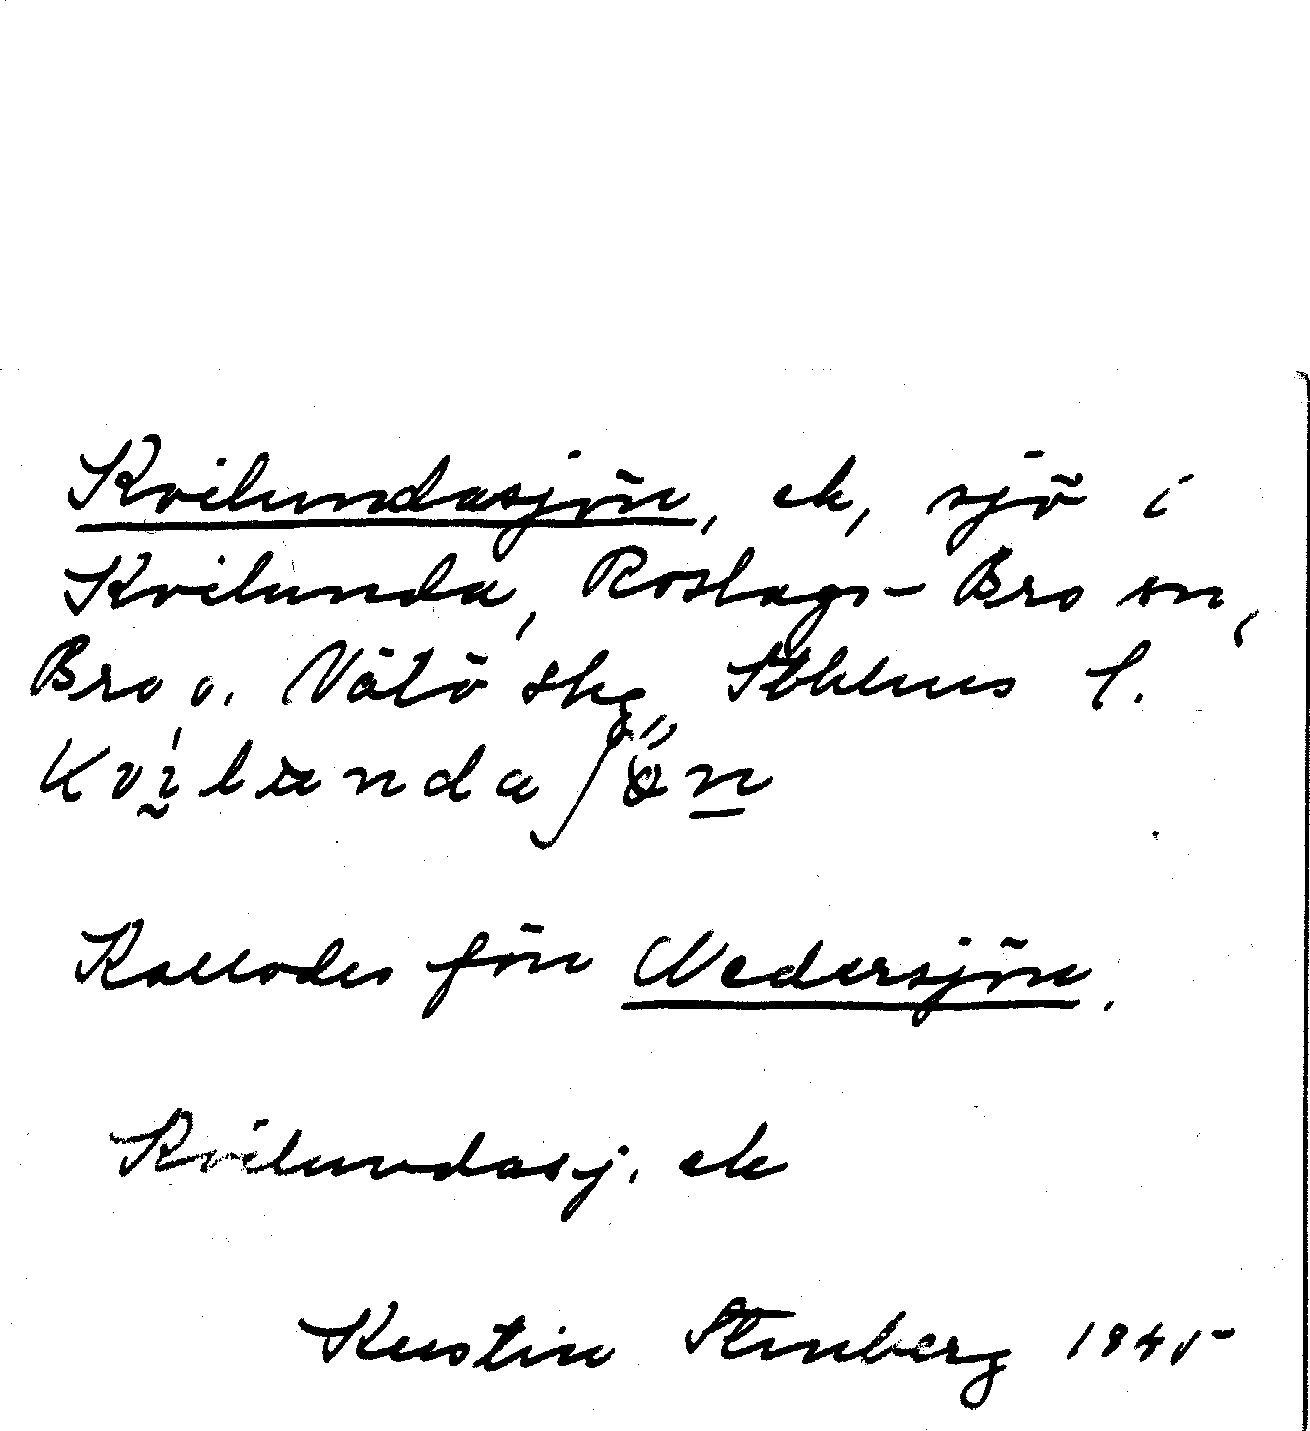 Kvilundasjön, ek, sjö i
Kvilunda, Roslags-Bro sn,
Bro o. Vätö skg Sthlms l.
Kallades förr Nedersjön.
Kvilundasj. ek
Kerstin Stenberg 1945